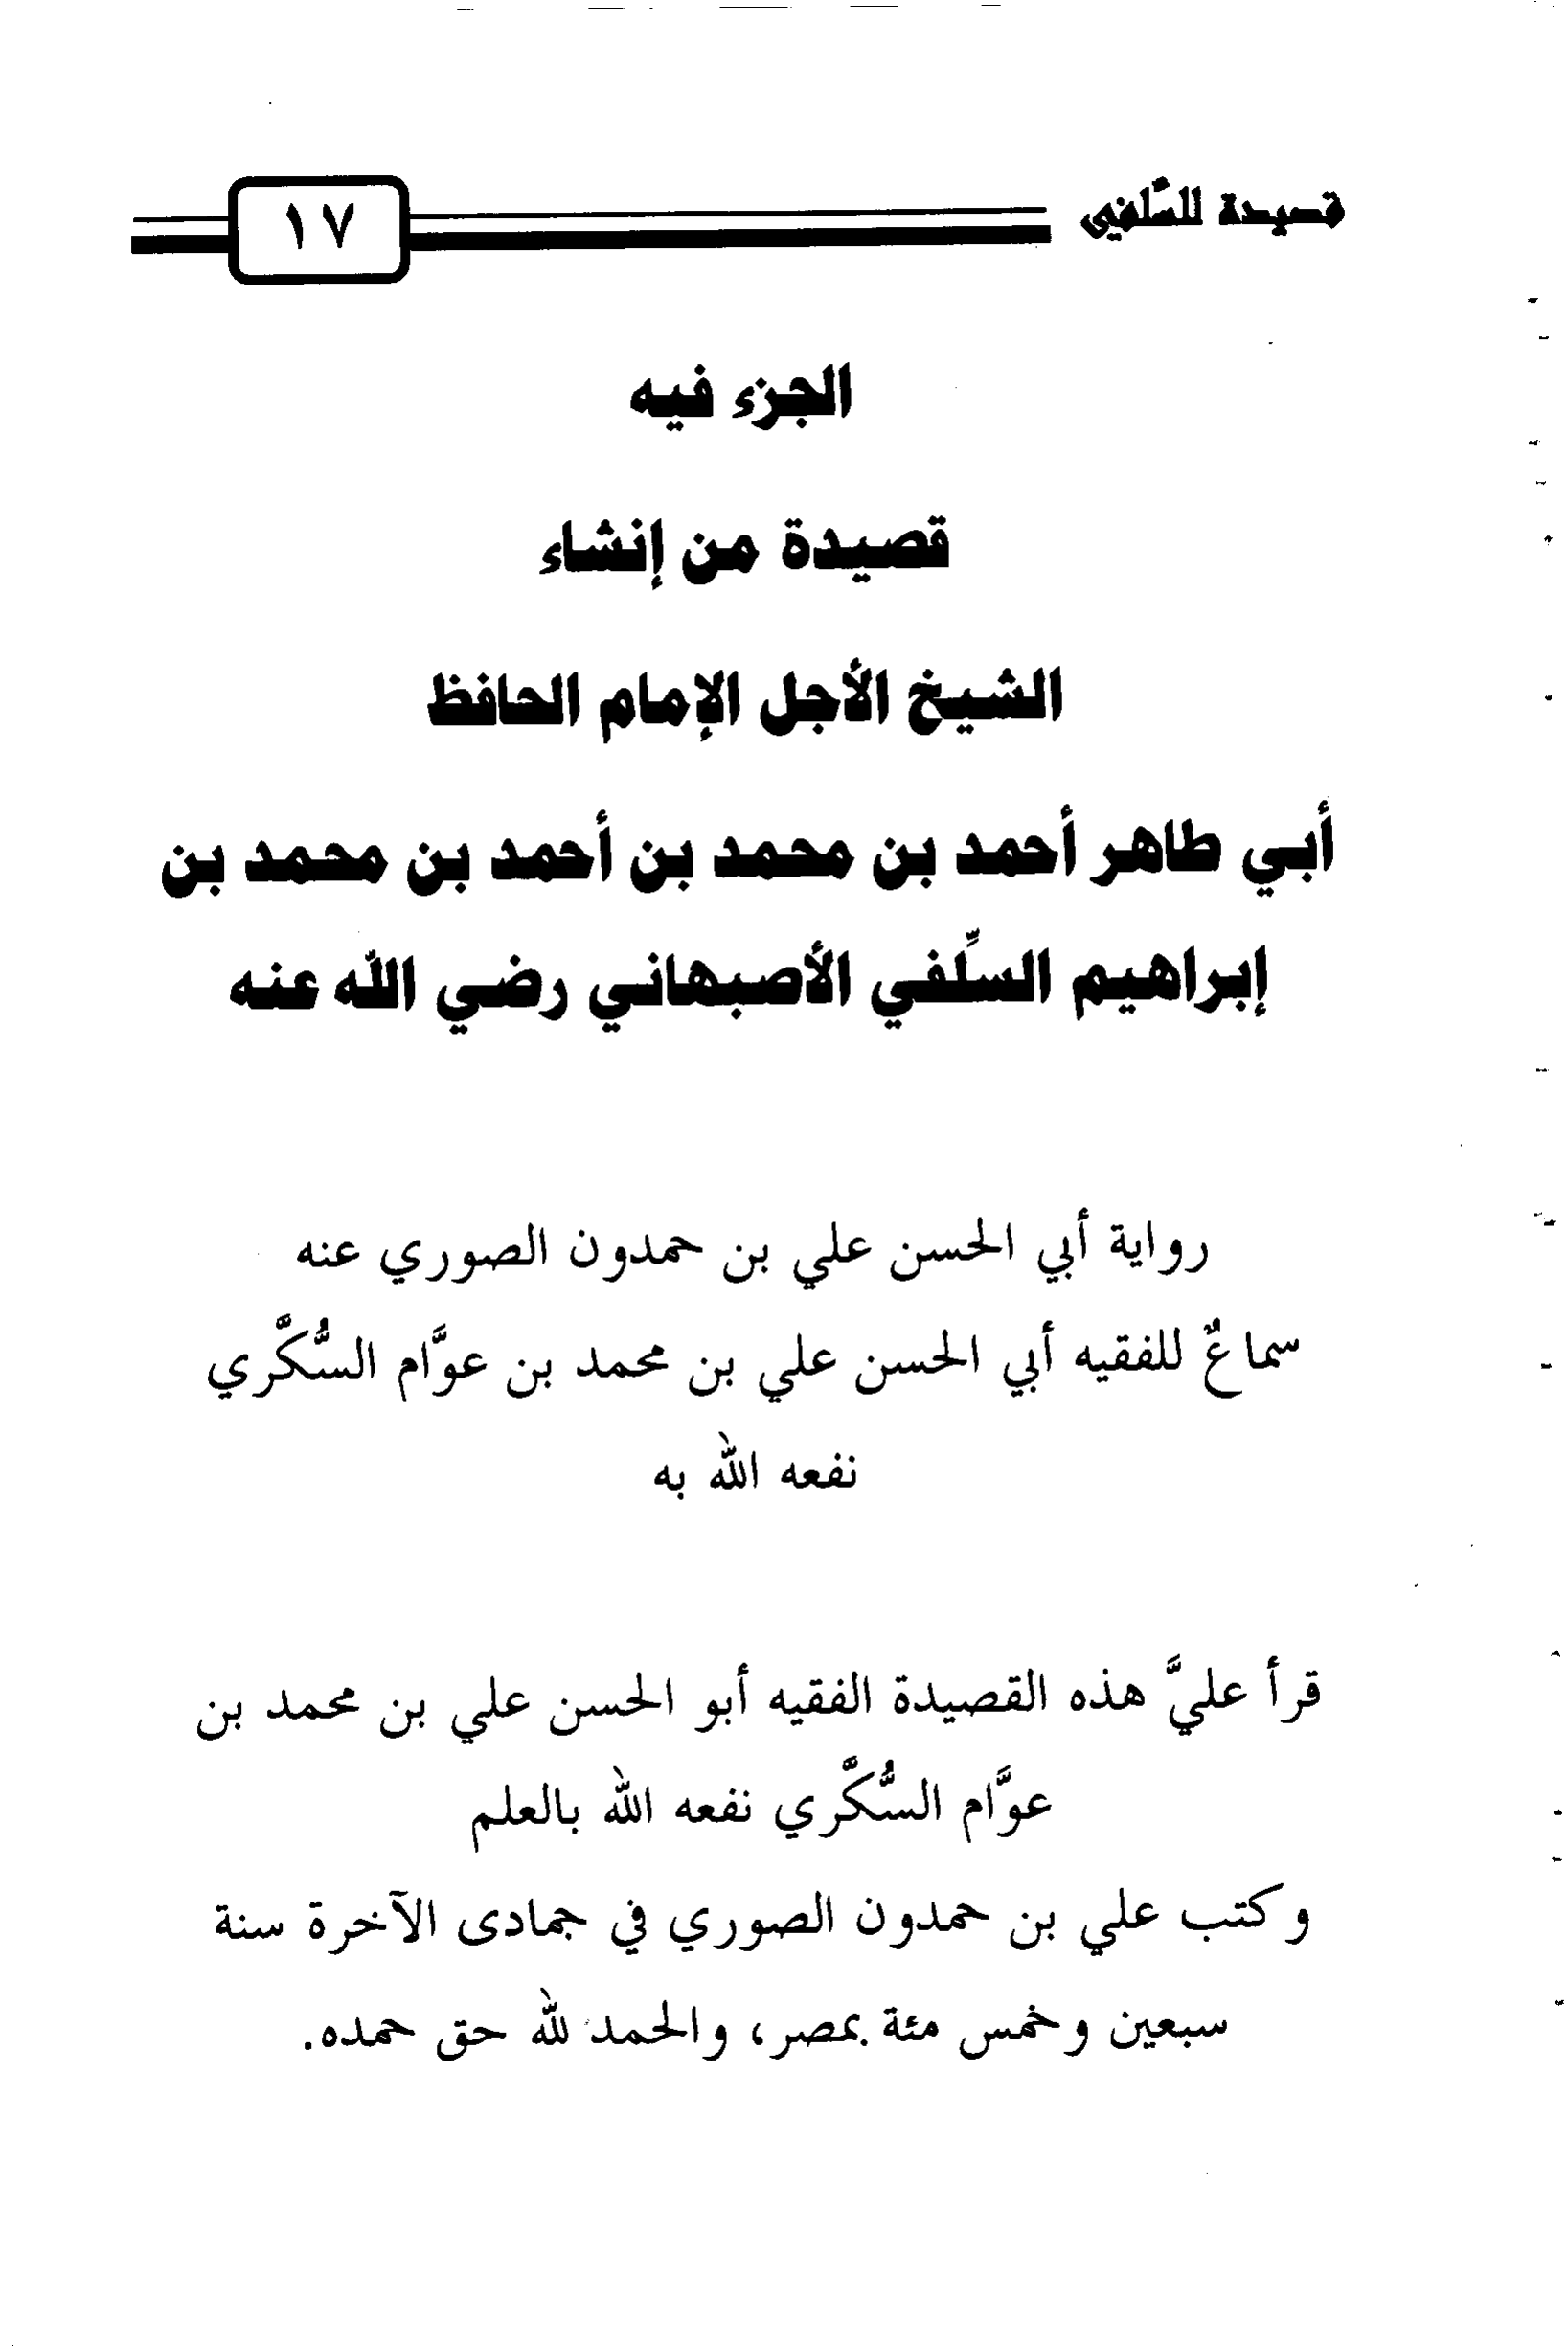 قصيدة للسِّلفي
١٧
الجزء فيه
قصيدة من إنشاء
الشيخ الأجل الإمام الحافظ
أبي طاهر أحمد بن محمد بن أحمد بن محمد بن
إبراهيم السِّلفي الأصبهاني رضي الله عنه
رواية أبي الحسن علي بن حمدون الصوري عنه
سماعٌ للفقيه أبي الحسن علي بن محمد بن عوَّام السُّكَّري
نفعه الله به
قرأ عليَّ هذه القصيدة الفقيه أبو الحسن علي بن محمد بن
عوَّام السُّكَّري نفعه الله بالعلم
وكتب علي بن حمدون الصوري في جمادى الآخرة سنة
سبعين وخمس مئة بمصر، والحمد لله حق حمده.